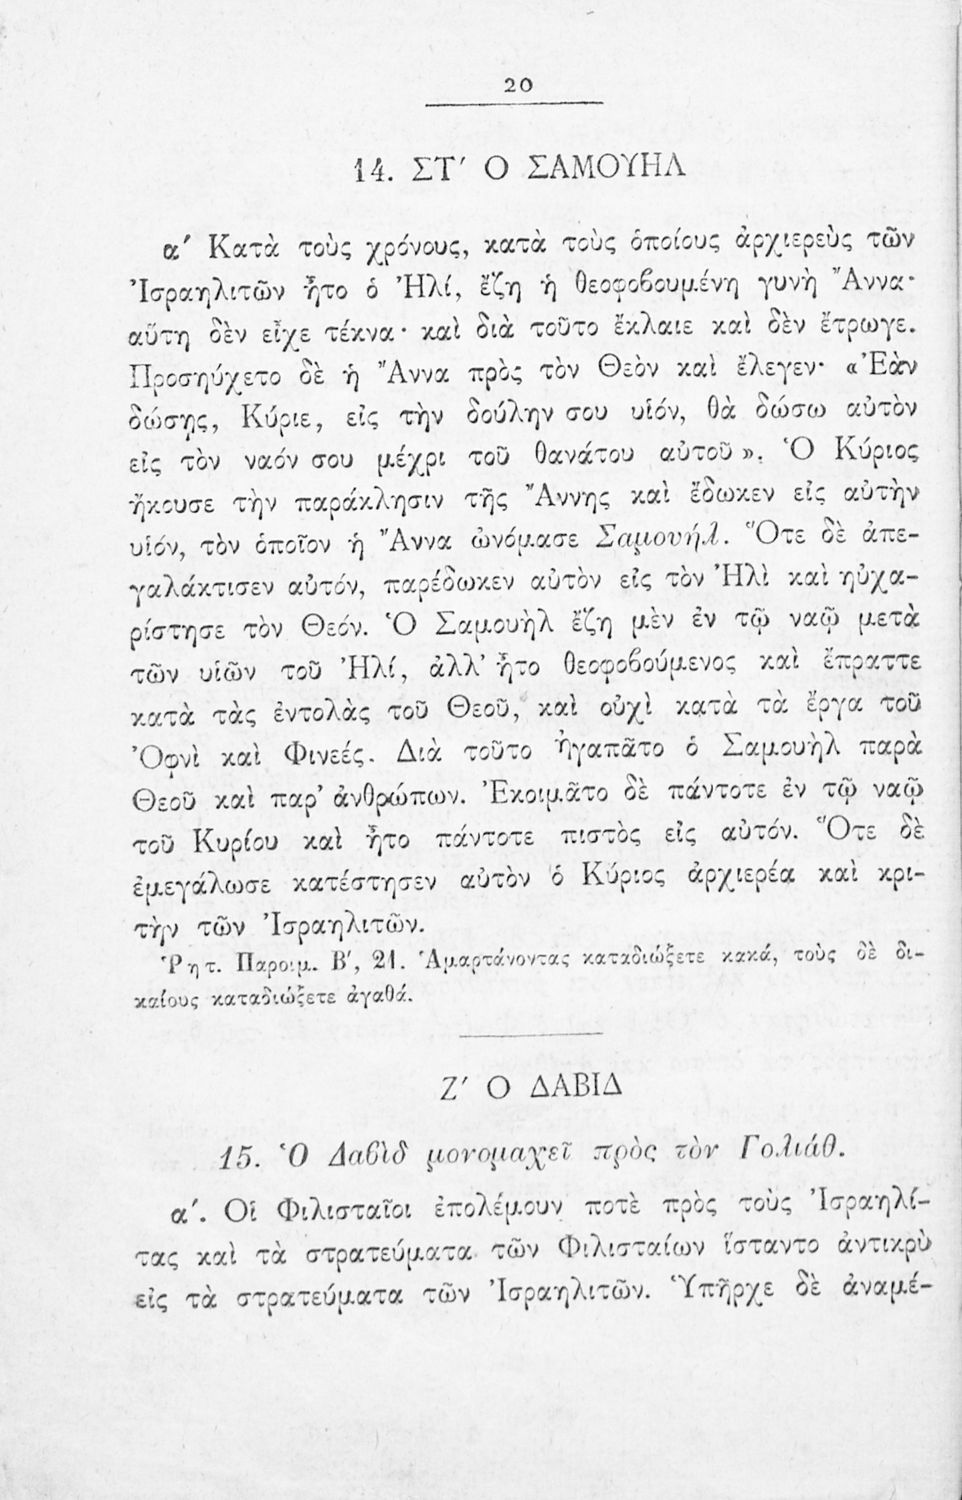 20
14. ΣΤʹ Ο ΣΑΜΟΥΗΛ
αʹ Κατὰ τοὺς χρόνους, κατὰ τοὺς ὁποίους ἀρχιερεὺς τῶν
Ἰσραηλιτῶν ἦτο ὁ Ἠλί, ἔζη ἡ θεοφοβουμένη γυνὴ Ἄννα·
αὕτη δὲν εἶχε τέκνα· καὶ διὰ τοῦτο ἔκλαιε καὶ δὲν ἔτρωγε.
Προσηύχετο δὲ ἡ Ἄννα πρὸς τὸν Θεὸν καὶ ἔλεγεν· «Ἐὰν
δώσῃς, Κύριε, εἰς τὴν δούλην σου υἱόν, θὰ δώσω αὐτὸν
εἰς τὸν ναόν σου μέχρι τοῦ θανάτου αὐτοῦ». Ὁ Κύριος
ἤκουσε τὴν παράκλησιν τῆς Ἄννης καὶ ἔδωκεν εἰς αὐτὴν
υἱόν, τὸν ὁποῖον ἡ Ἄννα ὠνόμασε Σαμουήλ. Ὅτε δὲ ἀπε-
γαλάκτισεν αὐτόν, παρέδωκεν αὐτὸν εἰς τὸν Ἠλὶ καὶ ηὐχα-
ρίστησε τὸν Θεόν. Ὁ Σαμουὴλ ἔζη μὲν ἐν τῷ ναῷ μετὰ
τῶν υἱῶν τοῦ Ἠλί, ἀλλ᾽ ἦτο θεοφοβούμενος καὶ ἔπραττε
κατὰ τὰς ἐντολὰς τοῦ Θεοῦ, καὶ οὐχὶ κατὰ τὰ ἔργα τοῦ
Ὀφνὶ καὶ Φινεές. Διὰ τοῦτο ἠγαπᾶτο ὁ Σαμουὴλ παρὰ
Θεοῦ καὶ παρ᾽ ἀνθρώπων. Ἐκοιμᾶτο δὲ πάντοτε ἐν τῷ ναῷ
τοῦ Κυρίου καὶ ἦτο πάντοτε πιστὸς εἰς αὐτόν. Ὅτε δὲ
ἐμεγάλωσε κατέστησεν αὐτὸν ὁ Κύριος ἀρχιερέα καὶ κρι-
τὴν τῶν Ἰσραηλιτῶν.
Ῥητ. Παροιμ. Βʹ, 21. Ἁμαρτάνοντας καταδιώξετε κακά, τοὺς δὲ δι-
καίους καταδιώξετε ἀγαθά.
Ζʹ Ο ΔΑΒΙΔ
15. Ὁ Δαβὶδ μονομαχεῖ πρὸς τὸν Γολιάθ.
αʹ. Οἱ Φιλισταῖοι ἐπολέμουν ποτὲ πρὸς τοὺς Ἰσραηλί-
τας καὶ τὰ στρατεύματα τῶν Φιλισταίων ἵσταντο ἀντικρὺ
εἰς τὰ στρατεύματα τῶν Ἰσραηλιτῶν. Ὑπῆρχε δὲ ἀναμέ-